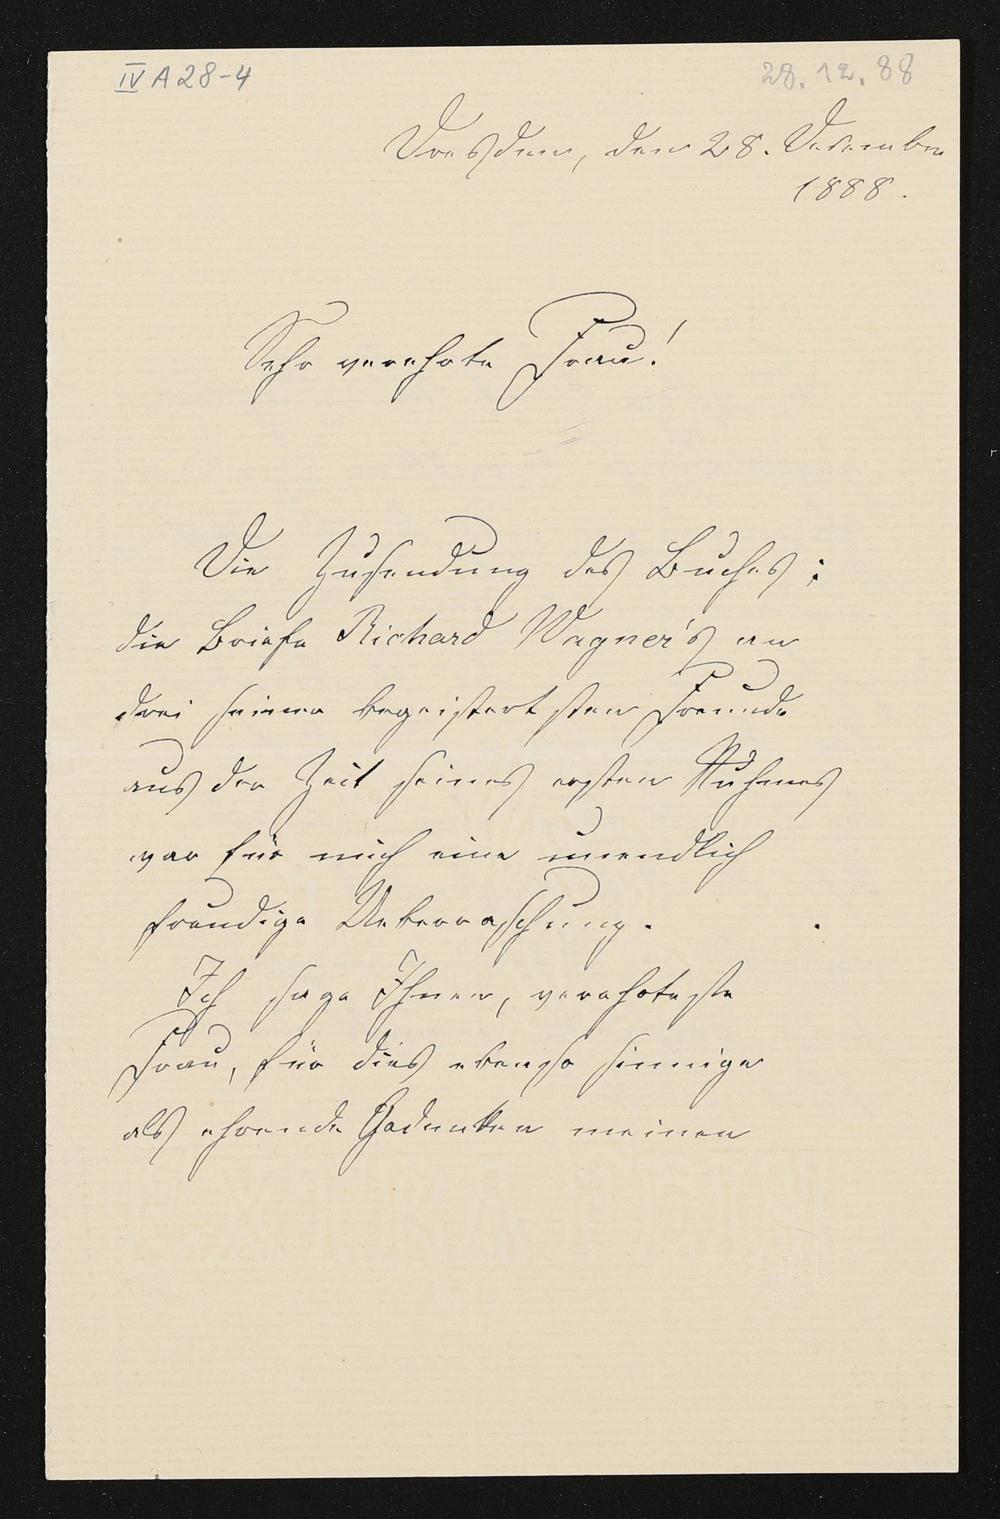 IV A 28-4
28. 12. 88
Dresden, den 28. Dezember
1888.
Sehr verehrte Frau!
Die Zusendung des Buches:
die Briefe Richard Wagner's an
drei seiner begeistertsten Freunde
aus der Zeit seines ersten Ruhmes
war für mich eine unendlich
freudige Ueberraschung.
Ich sage Ihnen, verehrteste
Frau, für dies ebenso sinnige
als ehrende Gedenken meinen